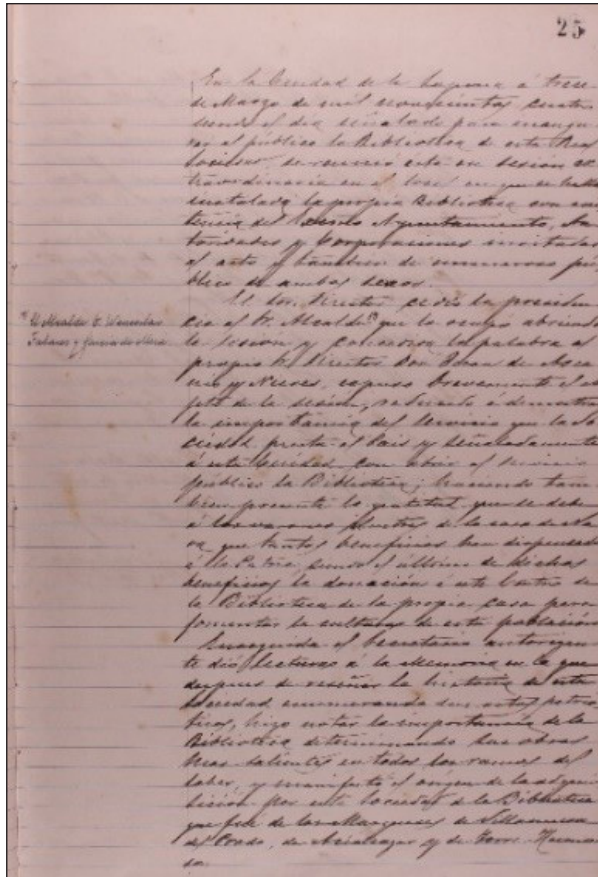 25
En la Ciudad de la Laguna á trece
de Marzo de mil novecientos cuatro
siendo el día señalado para inaugu-
rar al público la Biblioteca de esta Real
Sociedad se reunió esta en sesión es-
traordinaria en el local en que se halla
instalada la propia Biblioteca con asis-
tencia del Excmo Ayuntamiento, Au-
toridades y Corporaciones invitadas
al acto y tambien de numeroso pú-
blico de ambos sexos.
El Sor. Director cedió la presiden-
cia al Sr. Alcalde que la ocupó abriendo
" El Alcalde D. Wenceslao
Tabares y García de Mesa
la sesión y concedida la palabra al
propio Sr. Director Don Juan de Asca-
nio y Nieves, expuso brevemente el ob-
jeto de la sesión, á demostrar
la importancia del servicio que la So-
ciedad presta al Pais y señaladamente
á esta Ciudad con abrir al servicio
público la Biblioteca; haciendo tam-
bien presente la gratitud que se debe
á los varones ilustres de la casa de Na-
va, que tantos beneficios han dispensado
á la Patria, siendo el último de dichos
beneficios la donación á este Centro de
la Biblioteca de la propia casa para
fomentar la cultura de esta población
Enseguida el Secretario autorizan-
te dió lectura á la Memoria en la que
despues de reseñar la historia de esta
Sociedad enumerando sus actos patrió-
ticos, hizo notar la importancia de la
Biblioteca determinando las obras
mas salientes en todos los ramos del
saber, y manifestó el origen de la adqui-
sición por esta Sociedad de la Biblioteca
que fué de los Marqueses de Villanueva
del Prado, de Acialcazar y de Torre-Hermo-
sa.